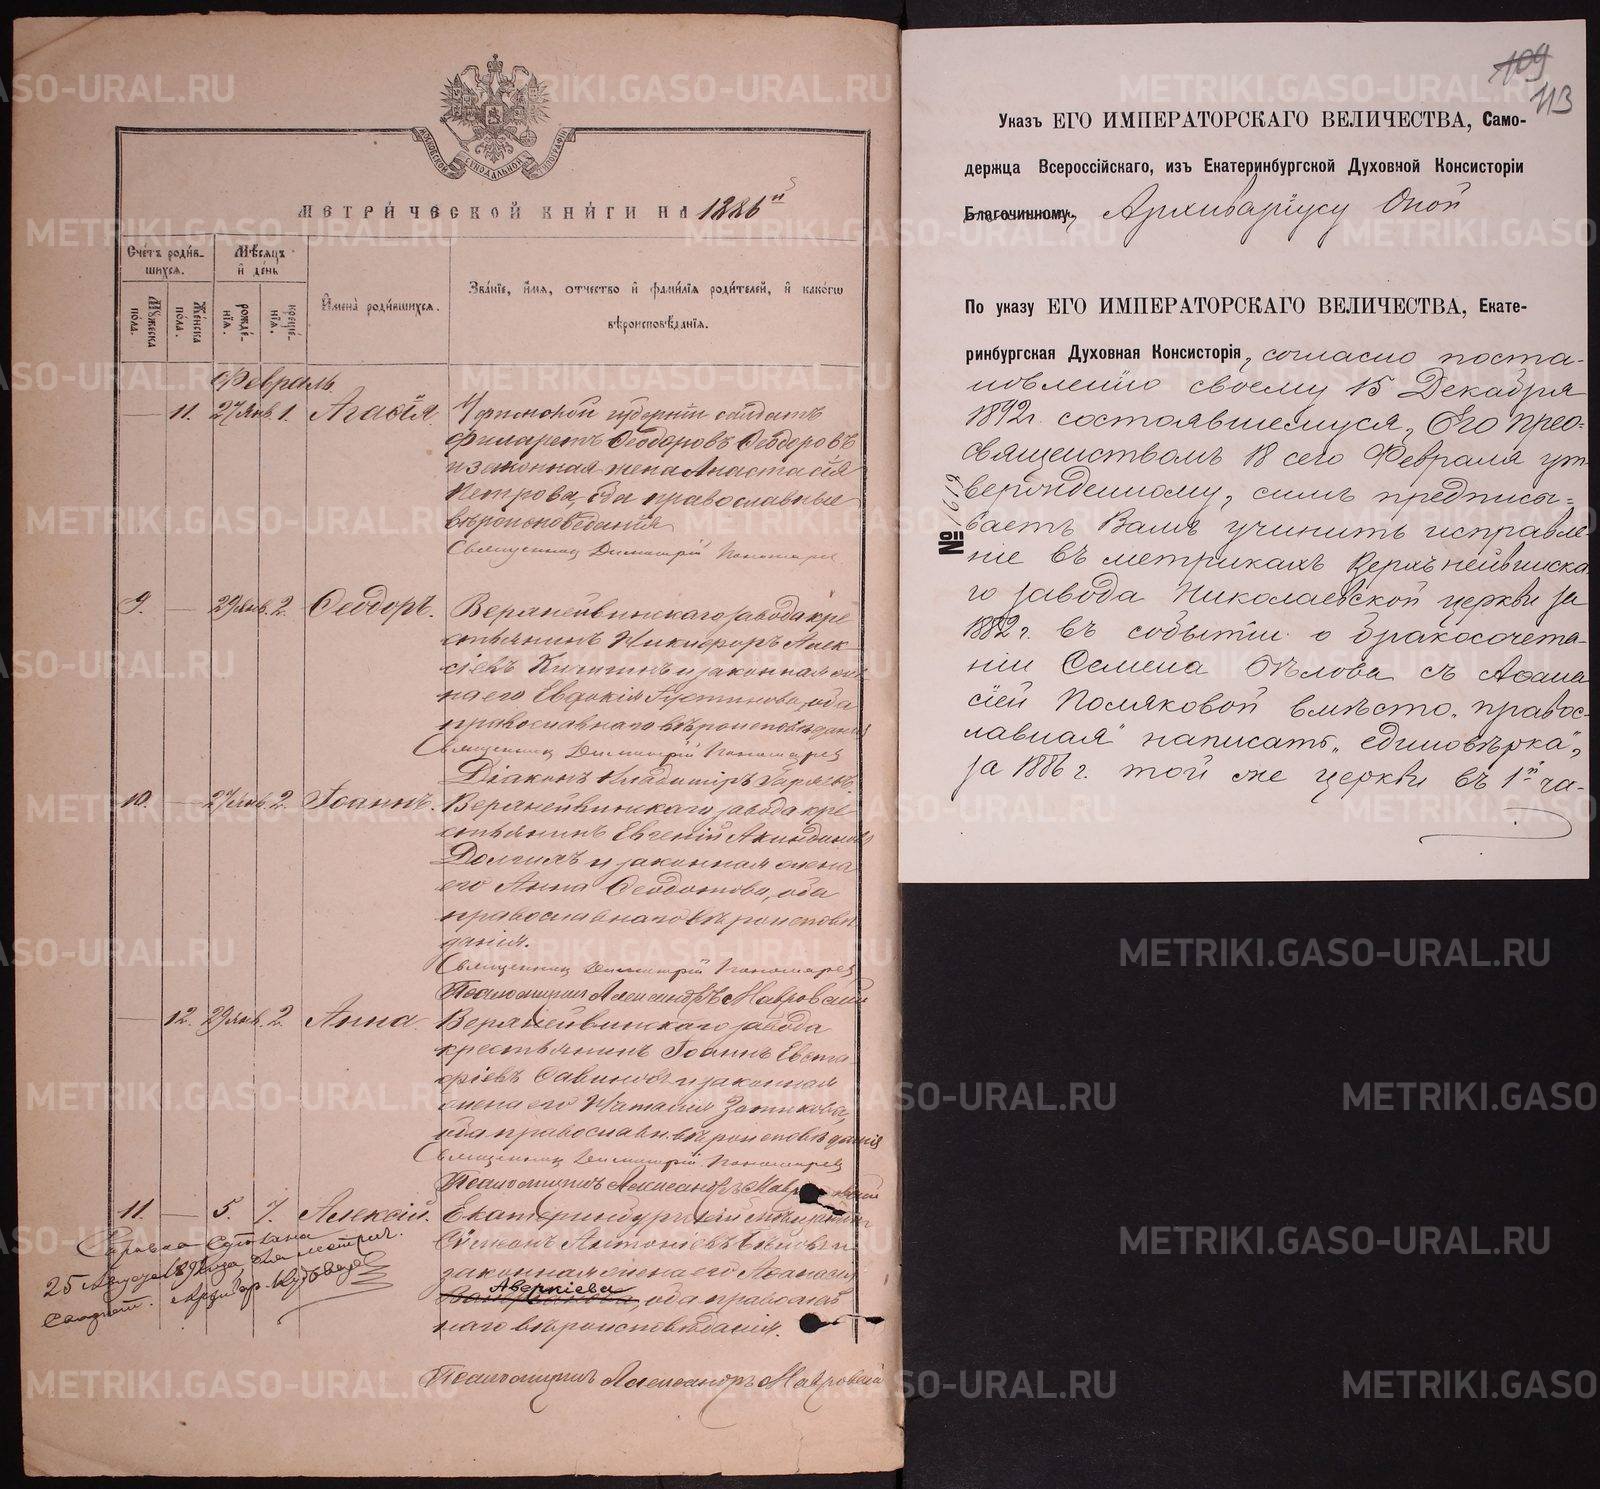 МОСКОВСКОЙ СѴНОДАЛЬНОЙ ТИПОГРАФІИ
МЕТРИЧЕСКОЙ КНИГИ НА 1886й
Счетъ родившихся.
Мѣсяцъ и день
Имена родившихся.
Званіе, имя, отчество и фамилія родителей, и какогω
вѣроисповѣданія.
Мꙋжеска пола.
Женска пола.
рожденія.
крещенія.
Февраль
— 11. 27 Янв. 1. Агаѳія.
Уфимской губерніи солдатъ
Филаретъ Ѳеодоровъ Ѳеодоровъ
и законная жена Анастасія
Петрова, оба православные
вѣроисповѣданія
Священникъ Димитрій Пономарев
9. — 29 Янв. 2. Ѳеодоръ.
Верхнейвинскаго завода кре
стьянинъ Никифоръ Алек
сіевъ и законная же
на его Евдокія Густинова, оба
православнаго вѣроисповѣданія
Священникъ Димитрій Пономарев
Діаконъ Владиміръ
10. — 27 Янв. 2. Іоаннъ.
Верхнейвинскаго завода кре
стьянинъ Евгеній Акиндинов
Долгихъ и законная жена
его Анна Ѳеодотова, оба
православнаго вѣроисповѣ
данія.
Священникъ Димитрій Пономарев
Псаломщикъ Александръ Мавровскій
— 12. 29 Янв. 2. Анна.
Верхнейвинскаго завода
крестьянинъ Іоаннъ Евста
фіевъ Савиновъ и законная
жена его Наталія Зотикова,
оба православн. вѣроисповѣданія
Священникъ Димитрій Пономарев
Псаломщикъ Александръ Мавровскій
11. — 5. 7. Алексій.
Екатеринбургскій мѣщанинъ
Сѵмеонъ Антоніевъ Бѣловъ и
законная жена его Аѳанасія
Аверкіева
оба православ
наго вѣроисповѣданія.
Справка сдѣлана
25 Августа 189 года, на метрич.
Псаломщикъ Александръ Мавровскій
109
113
Указъ ЕГО ИМПЕРАТОРСКАГО ВЕЛИЧЕСТВА, Само-
держца Всероссійскаго, изъ Екатеринбургской Духовной Консисторіи
Благочинному, Архиваріусу Оной
По указу ЕГО ИМПЕРАТОРСКАГО ВЕЛИЧЕСТВА, Екате-
ринбургская Духовная Консисторія, согласно поста-
новленію своему 15 Декабря
1892г. состоявшемуся, Его прео-
священствомъ 18 сего Февраля ут
вержденному, симъ предписы-
ваетъ Вамъ учинить исправле-
ніе въ метрикахъ Верхънейвинска
го завода Николаевской церкви за
1882 г. въ событіи о бракосочета-
ніи Семена Бѣлова съ Аѳана
сіей Поляковой вмѣсто „правос-
лавная“ написать „единовѣрка“,
за 1886 г. той же церкви въ 1й ча-
№ 1619
METRIKI.GASO-URAL.RU